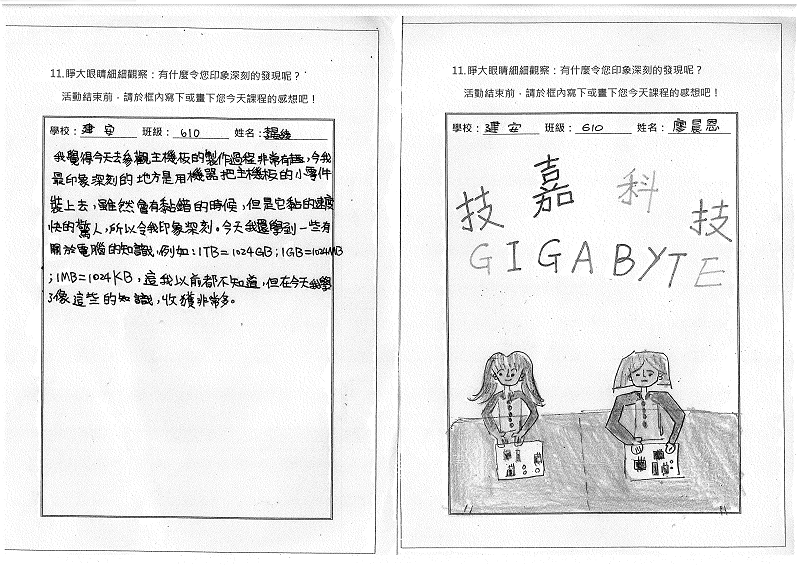 11.睜大眼睛細細觀察：有什麼令您印象深刻的發現呢？
活動結束前，請於框內寫下或畫下您今天課程的感想吧！
學校： 建安 班級： 610 姓名：
我覺得今天去參觀主機板的製作過程非常有趣，今我
最印象深刻的地方是用機器把主機板的小零件
裝上去，雖然會有黏錯的時候，但是它黏的速度
快的驚人，所以令我印象深刻。今天我還學到一些有
關於電腦的知識，例如：1TB=1024GB；1GB=1024MB
；1MB=1024KB，這我以前都不知道，但在今天我學
了像這些的知識，收獲非常多。
11.睜大眼睛細細觀察：有什麼令您印象深刻的發現呢？
活動結束前，請於框內寫下或畫下您今天課程的感想吧！
學校： 建安 班級： 610 姓名： 廖晨恩
技嘉科技
GIGABYTE